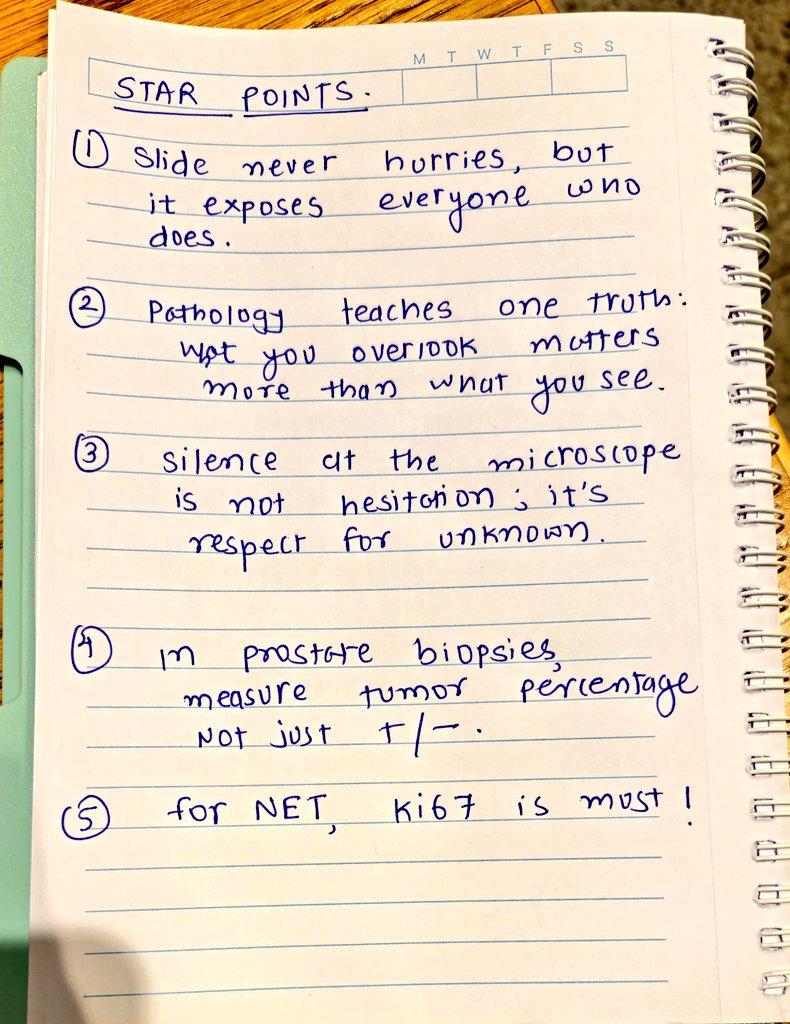 M T W T F S S
STAR POINTS.
① Slide never hurries, but
it exposes everyone who
does.
② Pathology teaches one truth:
what you overlook matters
more than what you see.
③ silence at the microscope
is not hesitation; it's
respect for unknown.
④ in prostate biopsies,
measure tumor percentage
Not just +/-.
⑤ for NET, Ki67 is must!